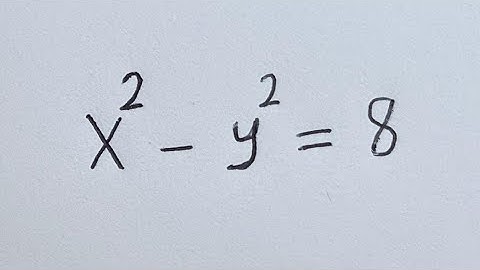 x² - y² = 8